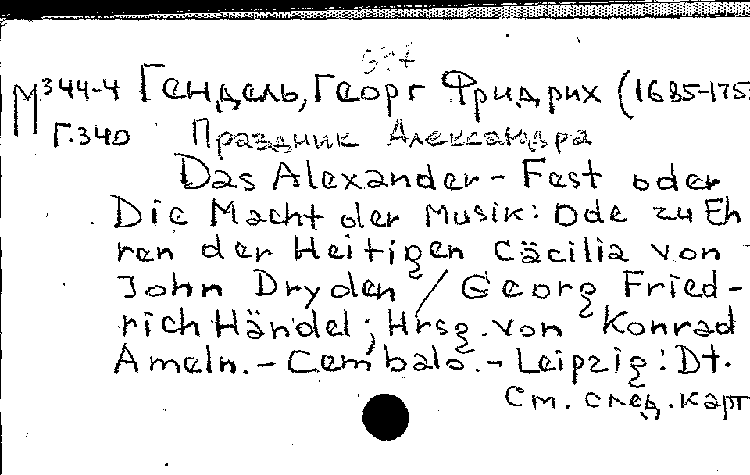 М344-4 Гендель, Георг Фридрих (1685-175
Г.340 Праздник Александра
Das Alexander-Fest oder
Die Macht der Musik: Ode zu Eh
ren der Heiligen Cäcilia von
John Dryden / Georg Fried-
rich Händel; Hrsg. von Konrad
Ameln. - Cembalo. - Leipzig: Dt.
См. след. карт